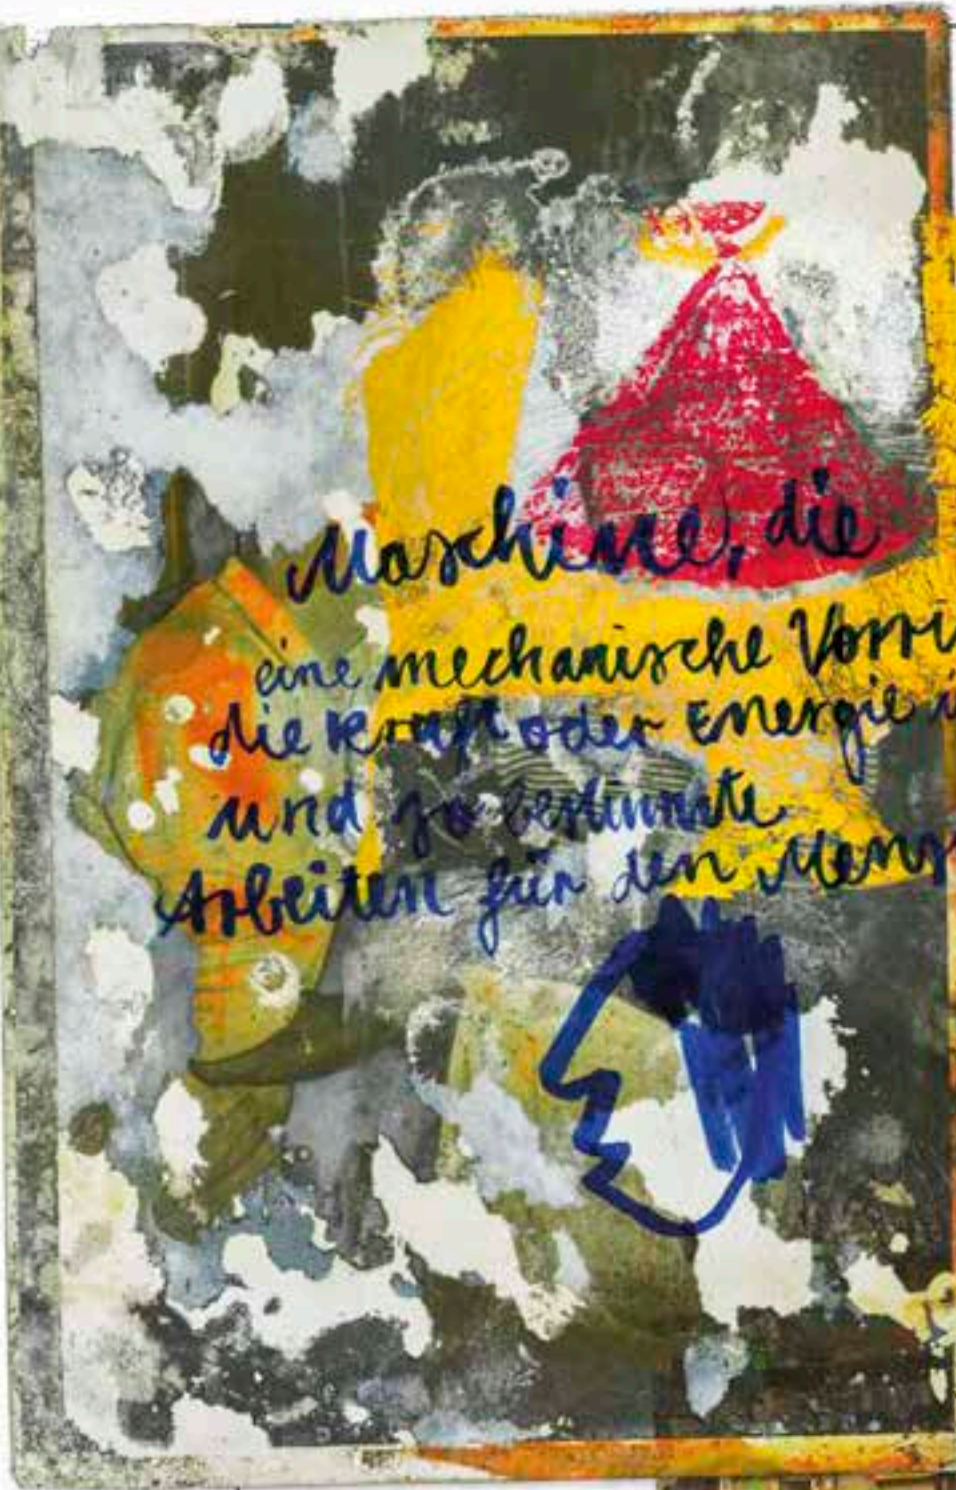 Maschine, die
eine mechanische Vorri
die Kraft oder Energie i
und so bestimmte
Arbeiten für den Mens